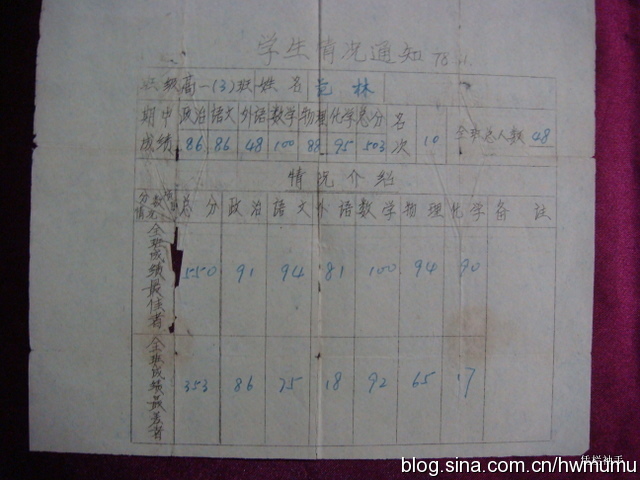 学生情况通知 78.11.
班级 高一(3)班 姓名 林
期中成绩 政治 语文 外语 数学 物理 化学 总分 名次 10 全班总人数 48
86 86 48 100 88 95 503
情况介绍
分数 情况 项目 总分 政治 语文 外语 数学 物理 化学 备注
全班成绩最佳者 550 91 94 81 100 94 90
全班成绩最差者 353 86 75 18 92 65 17
blog.sina.com.cn/hwmumu
凭栏袖手